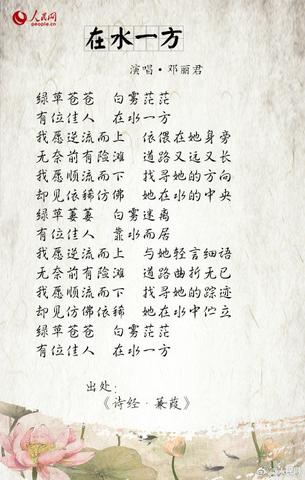 人民网
people.cn
在水一方
演唱·邓丽君
绿草苍苍 白雾茫茫
有位佳人 在水一方
我愿逆流而上 依偎在她身旁
无奈前有险滩 道路又远又长
我愿顺流而下 找寻她的方向
却见依稀仿佛 她在水的中央
绿草萋萋 白雾迷离
有位佳人 靠水而居
我愿逆流而上 与她轻言细语
无奈前有险滩 道路曲折无已
我愿顺流而下 找寻她的踪迹
却见仿佛依稀 她在水中伫立
绿草苍苍 白雾茫茫
有位佳人 在水一方
出处:
《诗经·蒹葭》